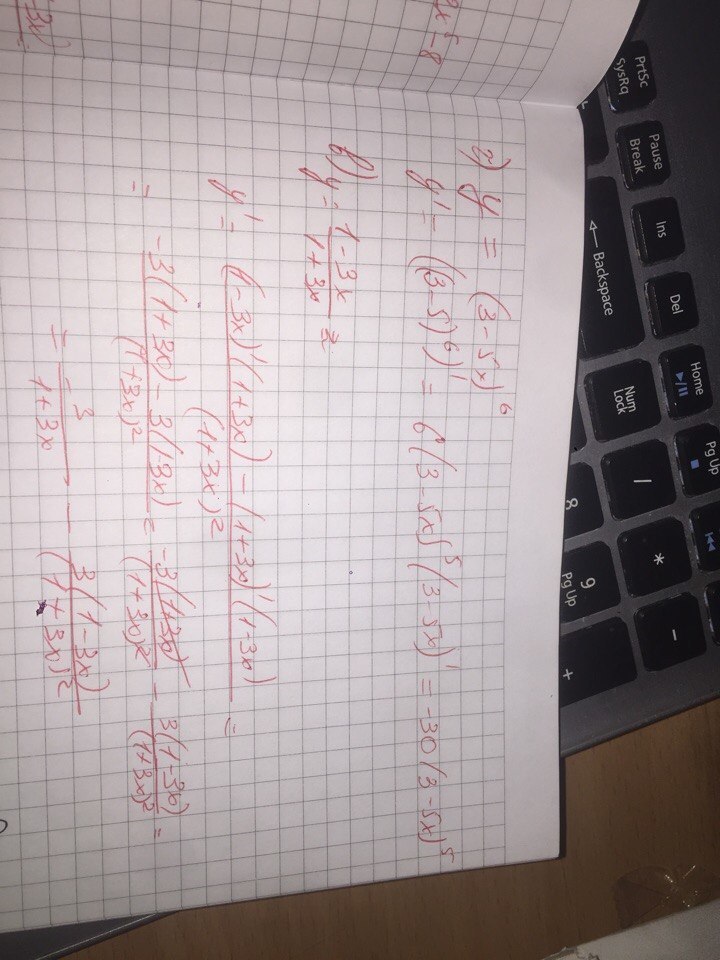 3x⁵-8
г) y = (3-5x)⁶
y' = ((3-5)⁶)' = 6(3-5x)⁵(3-5x)' = -30(3-5x)⁵
в) y = \frac{1-3x}{1+3x} =
y' = \frac{(1-3x)'(1+3x) - (1+3x)'(1-3x)}{(1+3x)²} =
= \frac{-3(1+3x) - 3(1-3x)}{(1+3x)²} = \frac{-3(1+3x)}{(1+3x)²} - \frac{3(1-3x)}{(1+3x)²} =
= \frac{-3}{1+3x} - \frac{3(1-3x)}{(1+3x)²}
-3x)
PrtSc
SysRq
Pause
Break
Ins
Del
Home
Pg Up
Backspace
Num
Lock
/
*
-
8
9
Pg Up
+